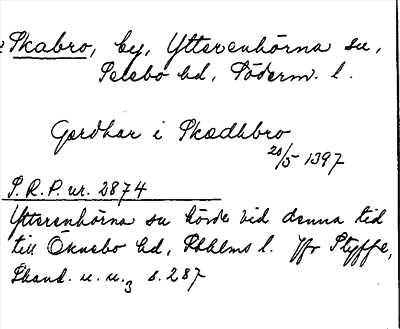 Skabro, by, Ytterenhörna sn,
Selebo hd, Söderm. l.
Gordhar i Skædhbro
20/5 1397
S.R.P. nr. 2874
Ytterenhörna sn hörde vid denna tid
till Öknebo hd, Sthlms l. Jfr Styffe,
Skand. u. u.3 s. 287